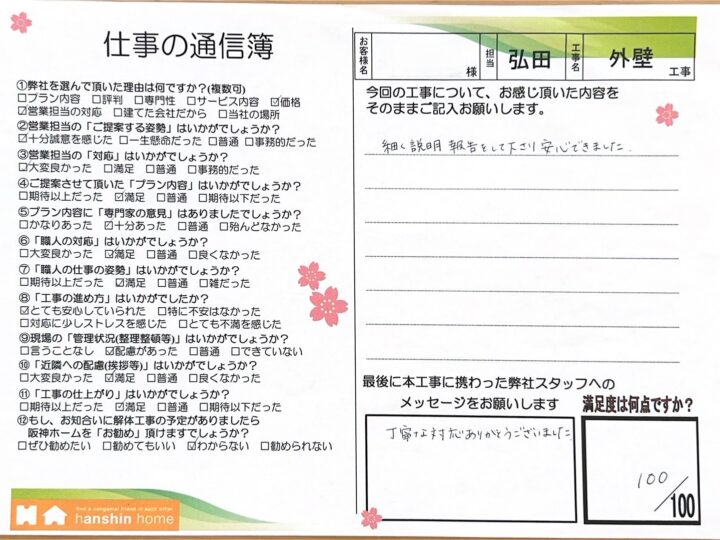 仕事の通信簿
①弊社を選んで頂いた理由は何ですか?(複数可)
□プラン内容 □評判 □専門性 □サービス内容 ☑価格
☑営業担当の対応 □建てた会社だから □当社の場所
②営業担当の「ご提案する姿勢」はいかがでしょうか?
☑十分誠意を感じた □一生懸命だった □普通 □事務的だった
③営業担当の「対応」はいかがでしょうか?
☑大変良かった □満足 □普通 □事務的だった
④ご提案させて頂いた「プラン内容」はいかがでしょうか?
□期待以上だった ☑満足 □普通 □期待以下だった
⑤プラン内容に「専門家の意見」はありましたでしょうか?
□かなりあった ☑十分あった □普通 □殆んどなかった
⑥「職人の対応」はいかがでしょうか?
□大変良かった ☑満足 □普通 □良くなかった
⑦「職人の仕事の姿勢」はいかがでしょうか?
□期待以上だった ☑満足 □普通 □雑だった
⑧「工事の進め方」はいかがでしたか?
☑とても安心していられた □特に不安はなかった
□対応に少しストレスを感じた □とても不満を感じた
⑨現場の「管理状況(整理整頓等)」はいかがでしょうか?
□言うことなし ☑配慮があった □普通 □できていない
⑩「近隣への配慮(挨拶等)」はいかがでしょうか?
□大変良かった ☑満足 □普通 □良くなかった
⑪「工事の仕上がり」はいかがでしょうか?
□期待以上だった ☑満足 □普通 □期待以下だった
⑫もし、お知合いに解体工事の予定がありましたら
阪神ホームを「お勧め」頂けますでしょうか?
□ぜひ勧めたい □勧めてもいい ☑わからない □勧められない
find a congenial friend in each other.
hanshin home
お客様名 様 担当 弘田 工事名 外壁 工事
今回の工事について、お感じ頂いた内容を
そのままご記入お願いします。
細く説明 報告をして下さり安心できました.
最後に本工事に携わった弊社スタッフへの
メッセージをお願いします
丁寧な対応ありがとうございました
満足度は何点ですか?
100/100